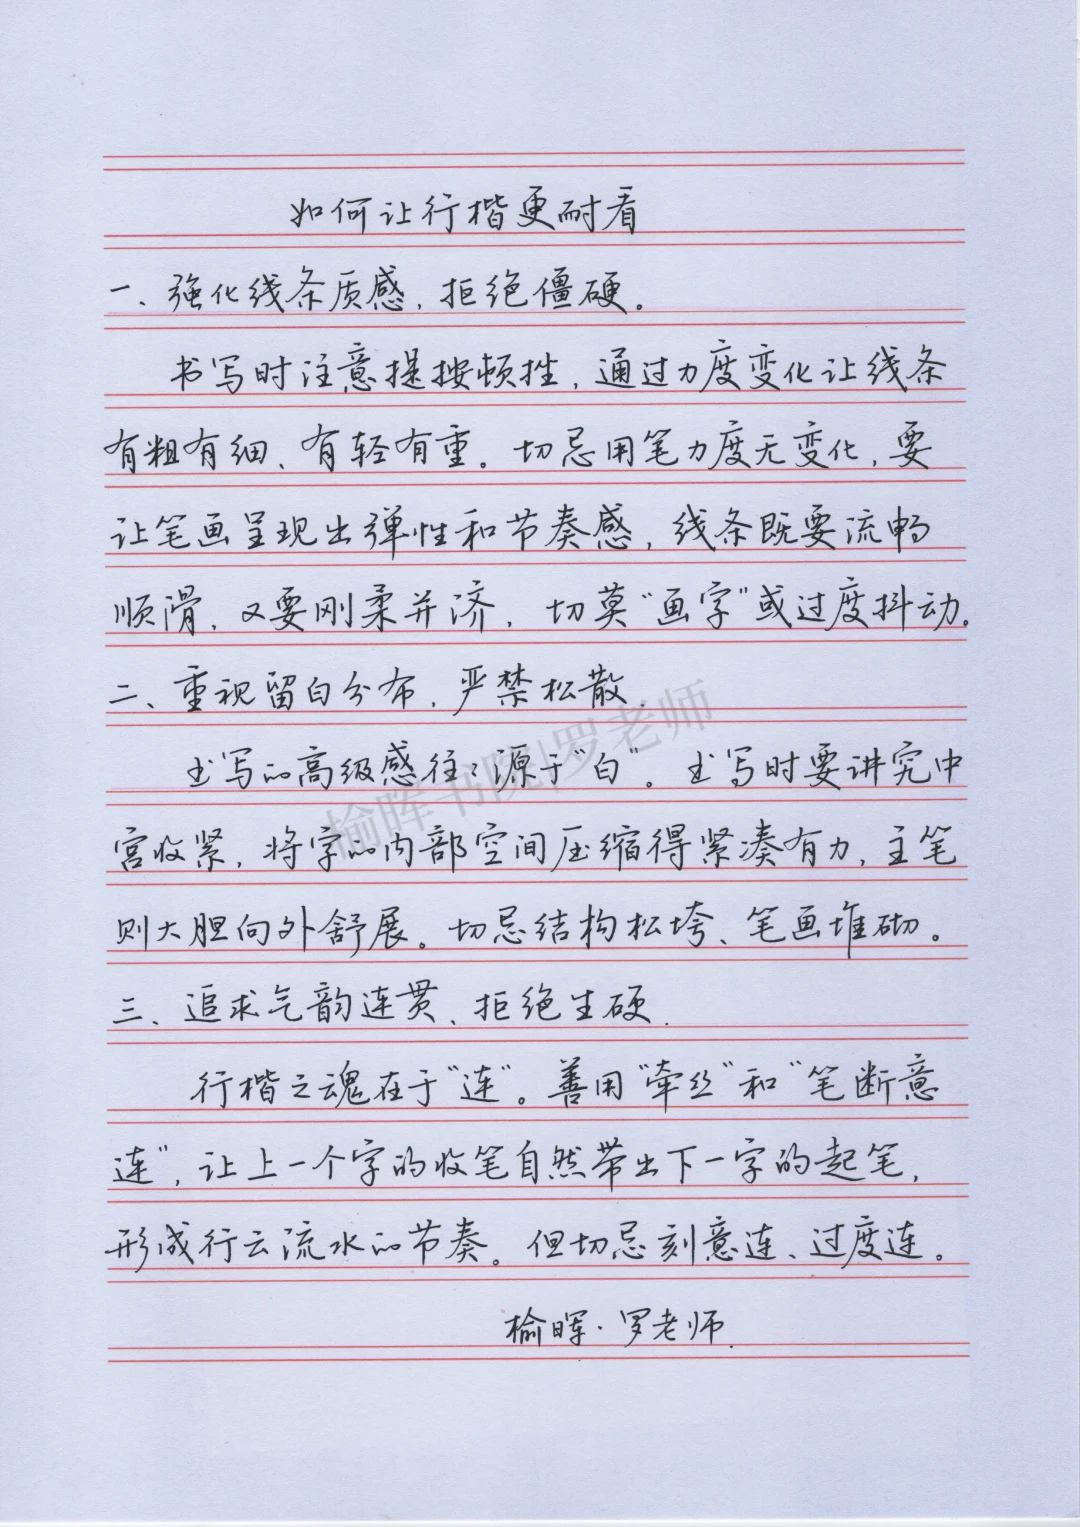 如何让行楷更耐看
一、强化线条质感，拒绝僵硬。
书写时注意提按顿挫，通过力度变化让线条
有粗有细、有轻有重。切忌用笔力度无变化，要
让笔画呈现出弹性和节奏感，线条既要流畅
顺滑，又要刚柔并济，切莫“画字”或过度抖动。
二、重视留白分布，严禁松散.
书写的高级感往往源于“白”。书写时要讲究中
宫收紧，将字的内部空间压缩得紧凑有力，主笔
则大胆向外舒展。切忌结构松垮、笔画堆砌。
三、追求气韵连贯、拒绝生硬.
行楷之魂在于“连”。善用“牵丝”和“笔断意
连”，让上一个字的收笔自然带出下一字的起笔，
形成行云流水的节奏。但切忌刻意连、过度连。
榆晖·罗老师.
榆晖书院|罗老师